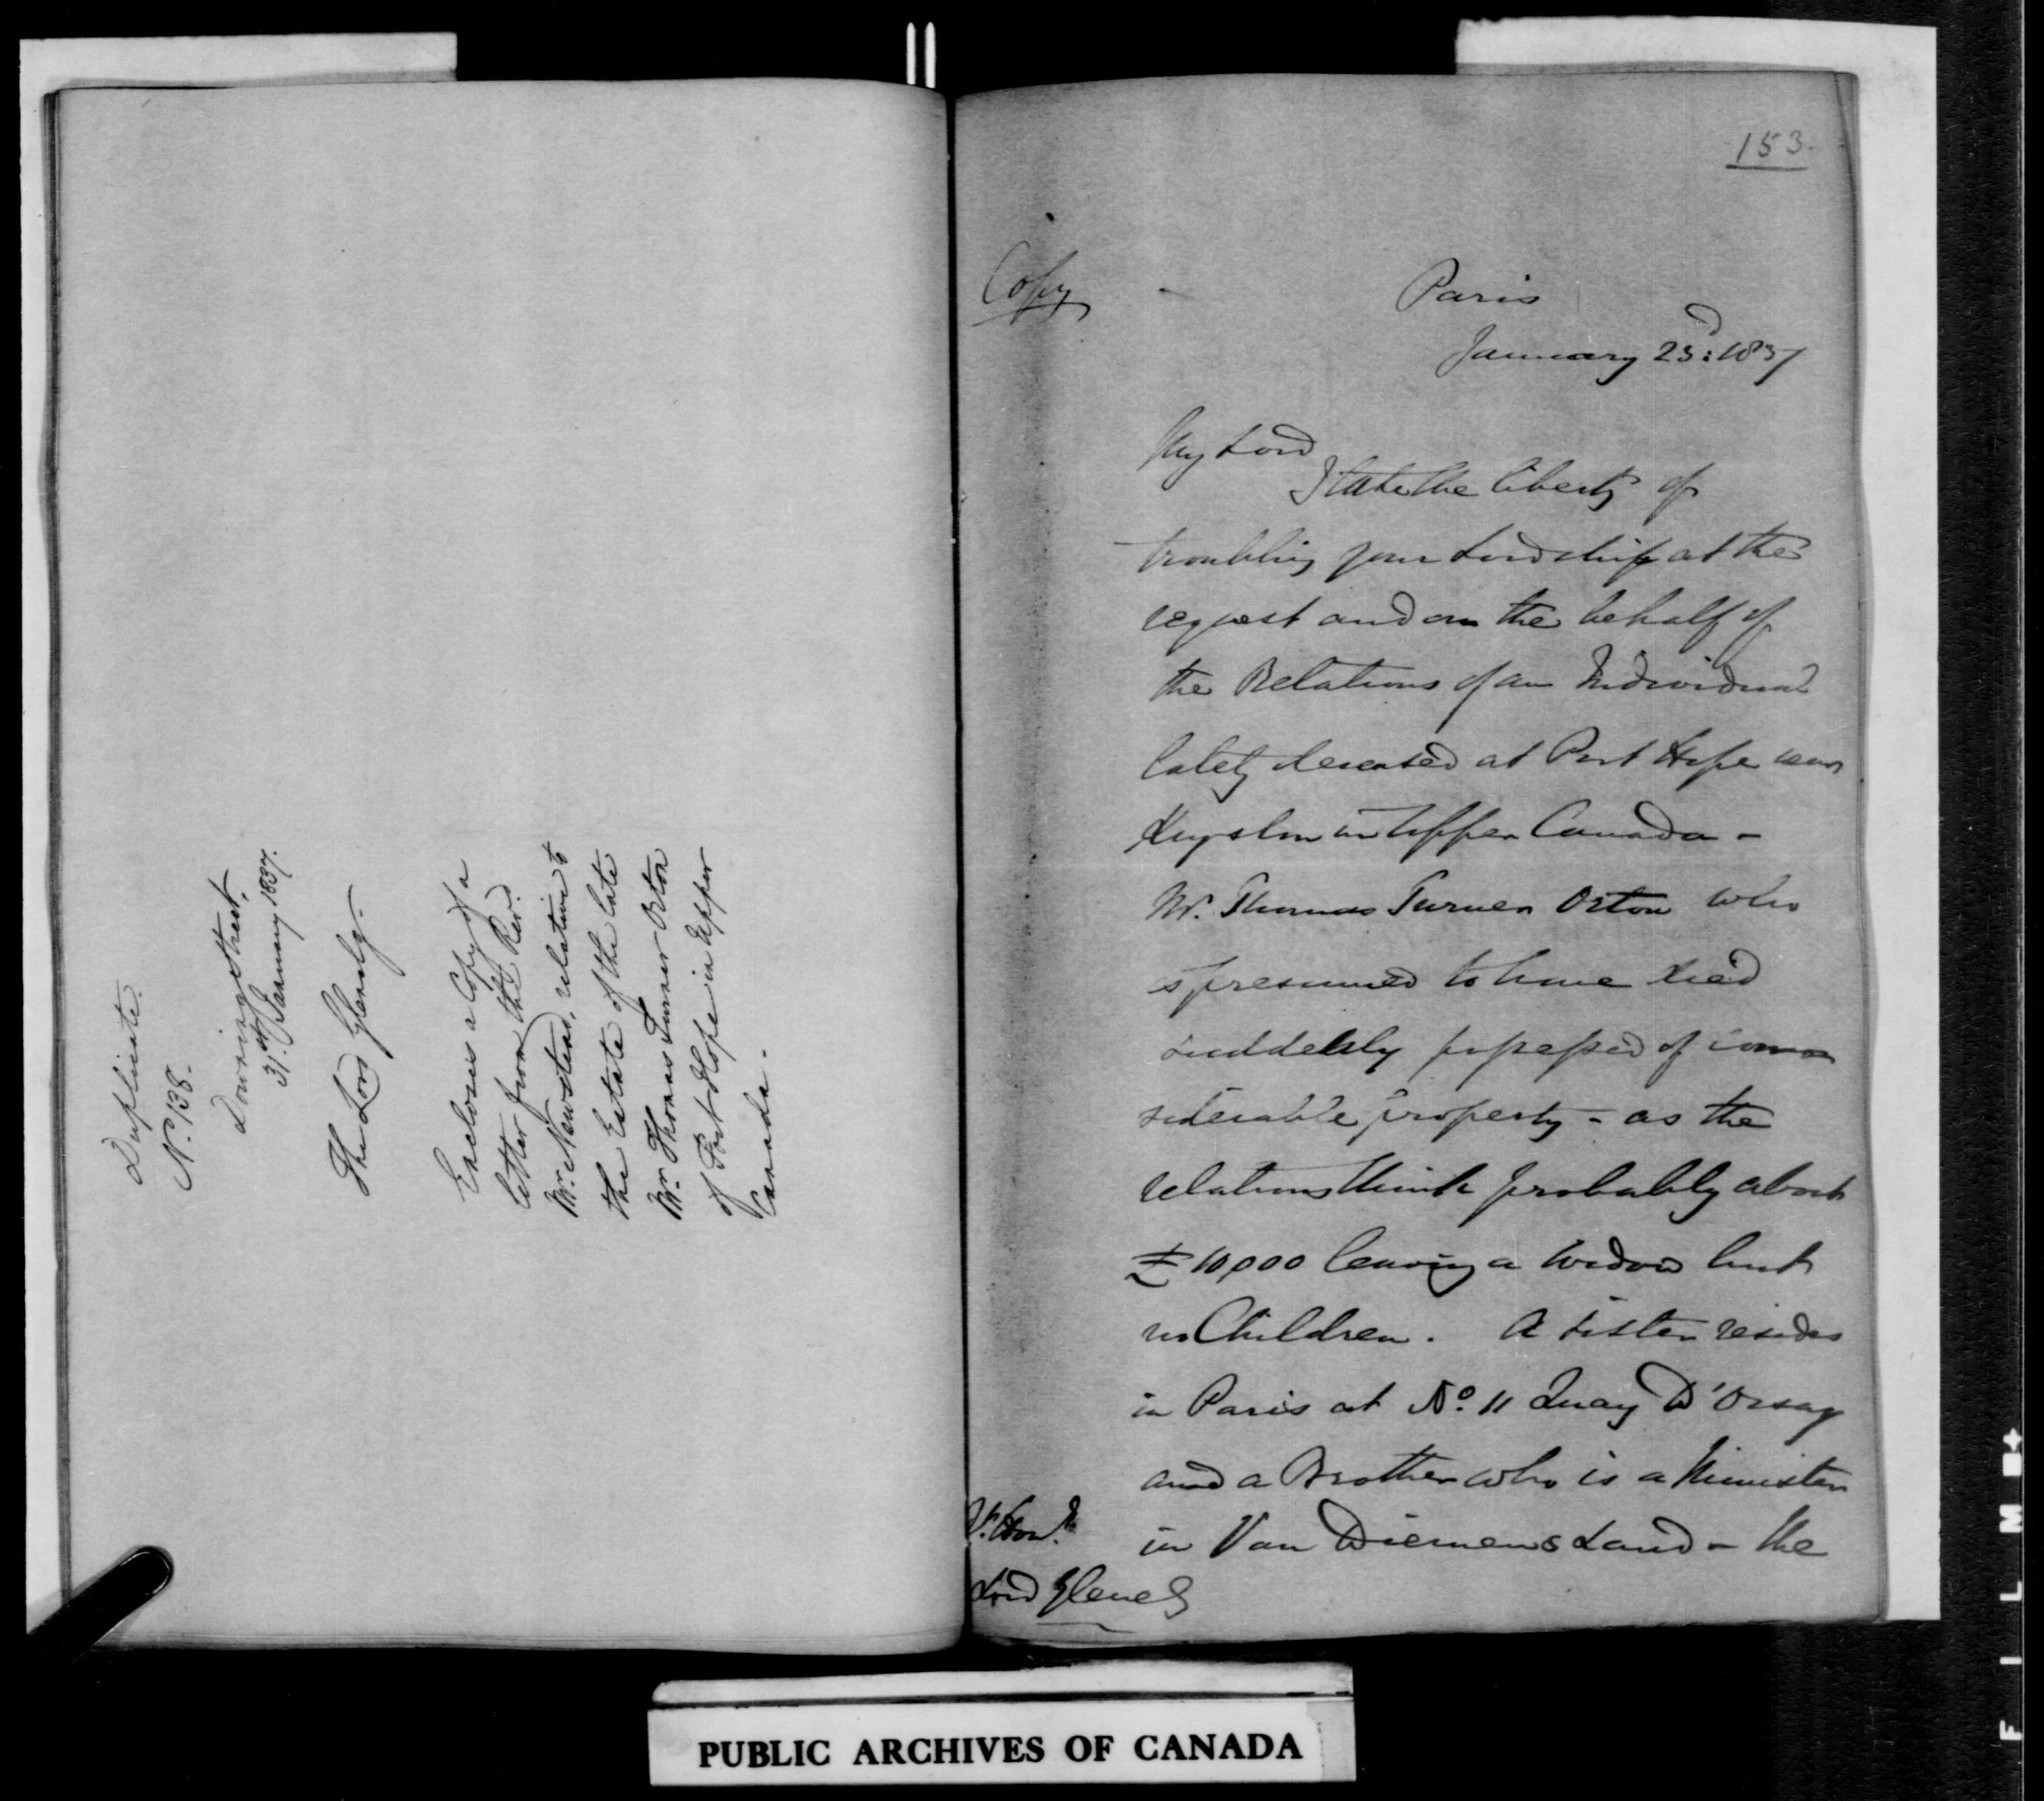 Duplicate.
No. 138.
Downing Street,
31st January 1837.
The Lord Glenelg.
Encloses a Copy of a
letter from the Revd.
Mr. Newstead, relative to
the Estate of the late
Mr. Thomas Turner Orton
of Port Hope in Upper
Canada.
153.
Copy
Paris
January 23d: 1837
My Lord
I take the liberty of
troubling your Lordship at the
request and on the behalf of
the Relations of an Individual
lately deceased at Port Hope near
Kingston in Upper Canada -
Mr. Thomas Turner Orton who
is presumed to have died
suddenly possessed of con
siderable property - as the
relations think probably about
£10,000 leaving a Widow but
no Children. A sister resides
in Paris at No. 11 Quay D'Orsay
and a Brother who is a Minister
in Van Diemens Land - the
Rt. Honl.
Lord Glenelg
PUBLIC ARCHIVES OF CANADA
FILM